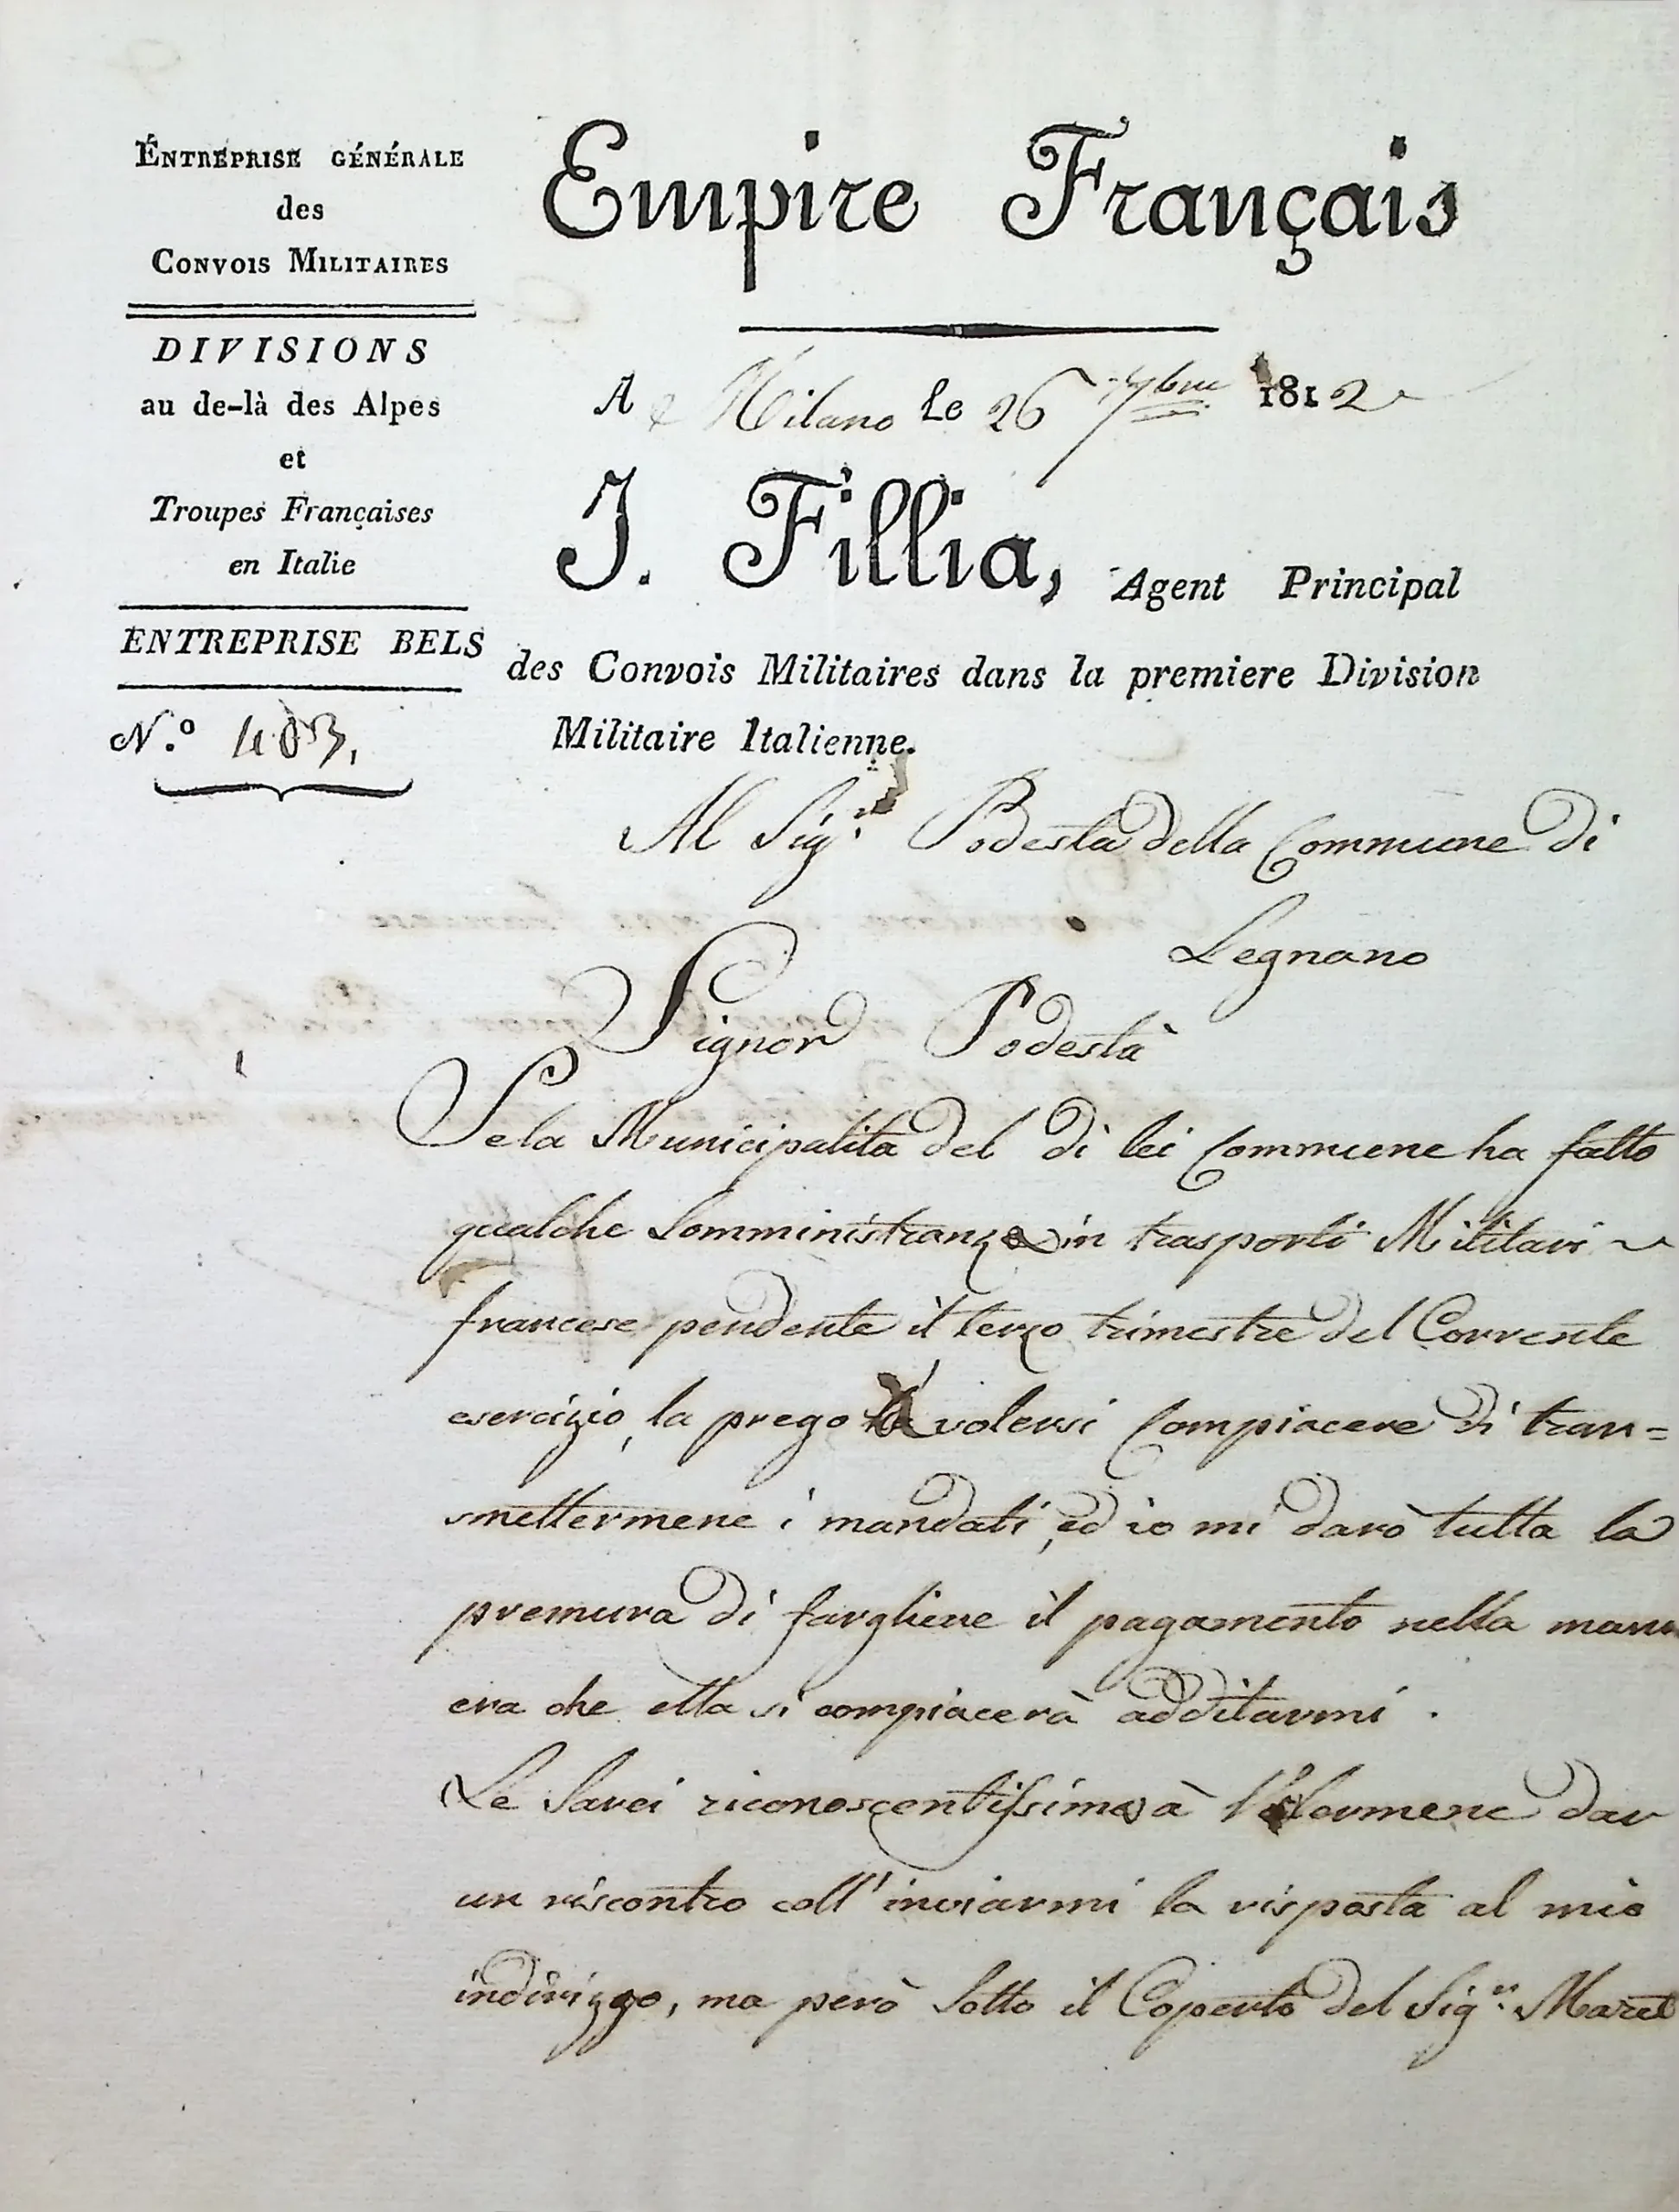 ÉNTREPRISE GÉNÉRALE
des
CONVOIS MILITAIRES
DIVISIONS
au de-là des Alpes
et
Troupes Françaises
en Italie
ENTREPRISE BELS
N.º 403,
Empire Français
A Milano le 26 7bre 1812
J. Fillia, Agent Principal
des Convois Militaires dans la premiere Division
Militaire Italienne.
Al Sig.r Podestà della Commune di
Legnano
Signor Podestà
Se la Municipalita del di lei Commune ha fatto
qualche Somministranza in trasporti Militari
francese pendente il terzo trimestre del Corrente
esercizio, la prego volersi Compiacere di tran=
smettermene i mandati, ed io mi darò tutta la
premura di fargliene il pagamento nella mani
era che ella si compiacerà additarmi.
Le Sarei riconoscentissimo à dar
un riscontro coll'inviarmi la risposta al mio
indirizzo, ma però Sotto il Coperto del Sig.r